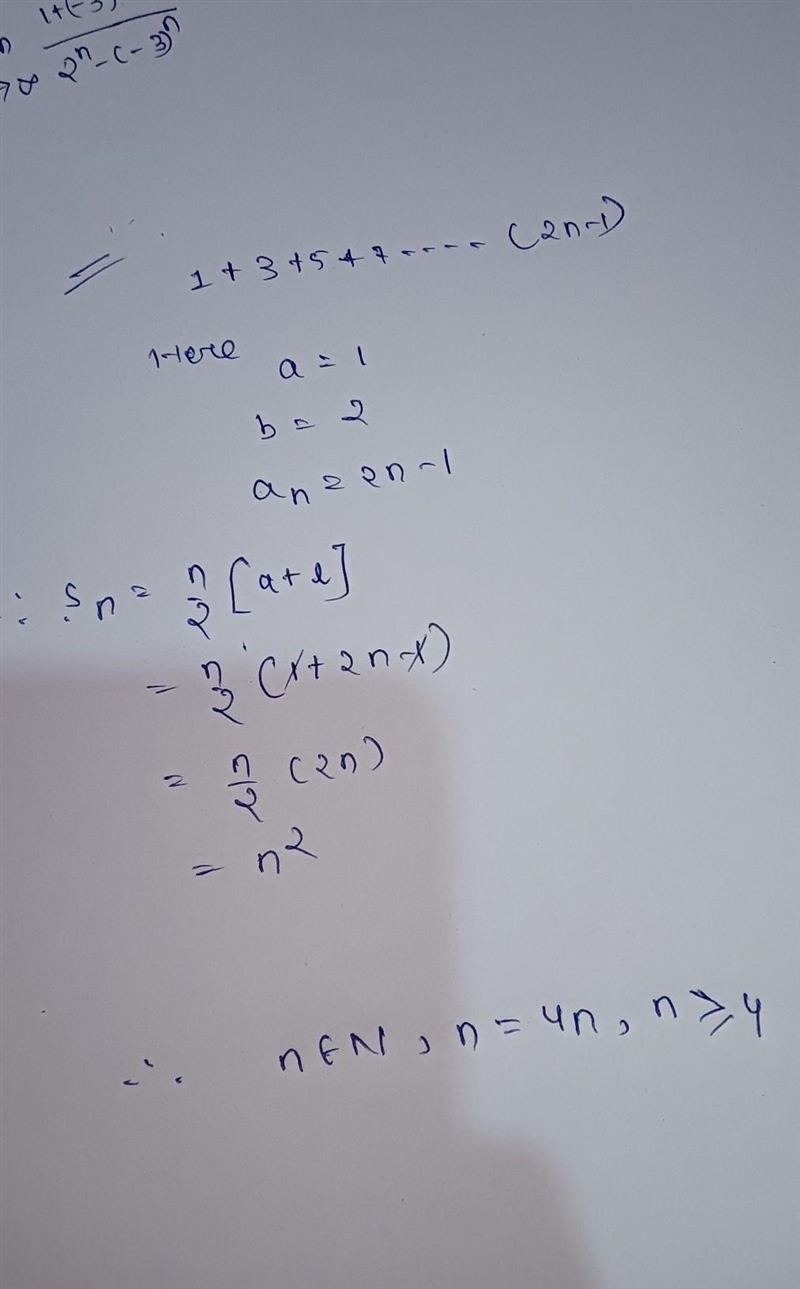 1+(-3)
2ⁿ-(-3)ⁿ
1+3+5+7---- (2n-1)
Here a = 1
b = 2
aₙ = 2n-1
∴ Sₙ = n/2 [a+l]
= n/2 (1+2n-1)
= n/2 (2n)
= n²
∴ n∈N, n=4n, n≥4